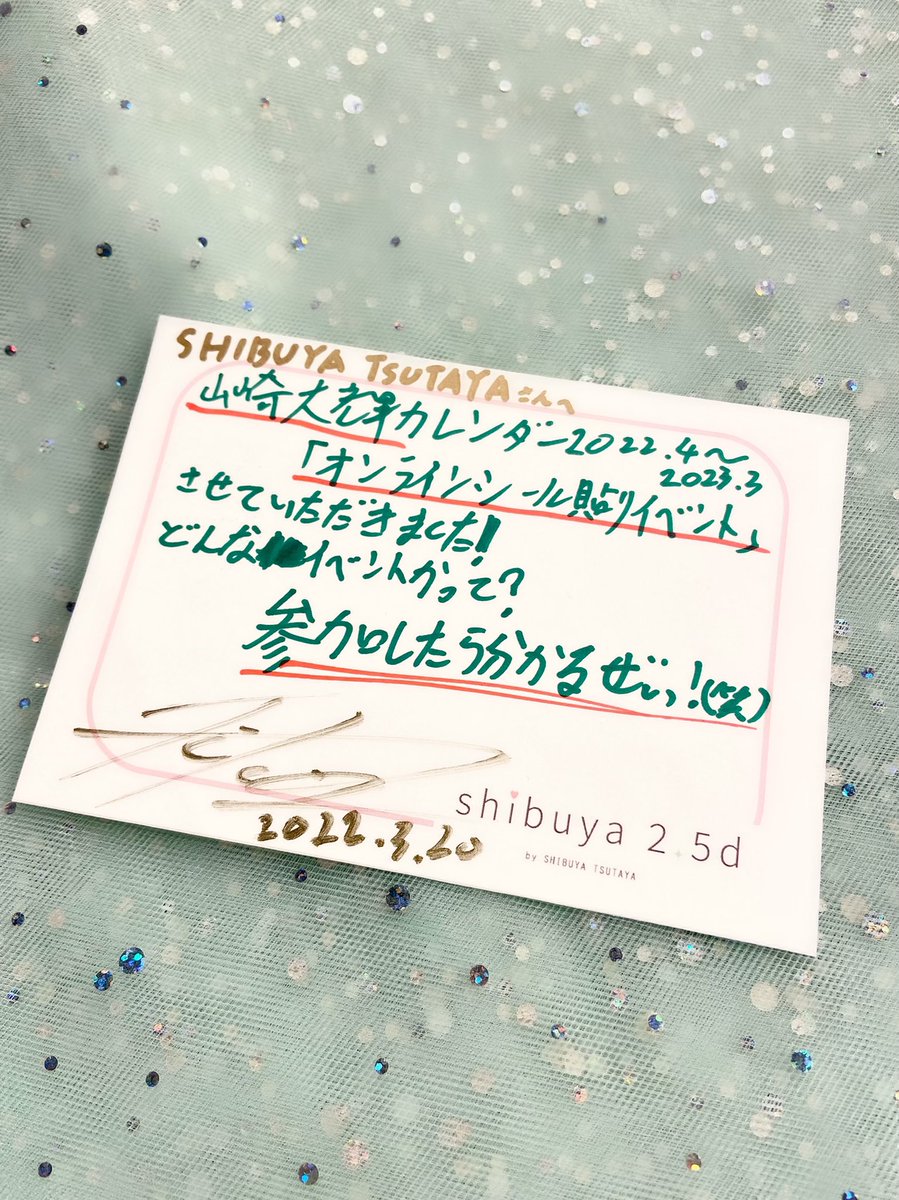 SHIBUYA TSUTAYAさんへ
山崎大輝カレンダー2022.4〜
2023.3
「オンラインシール貼りイベント」
させていただきました!
どんなイベントかって?
参加したら分かるぜぃっ!(笑)
2022.3.20
shibuya 2.5d
by SHIBUYA TSUTAYA